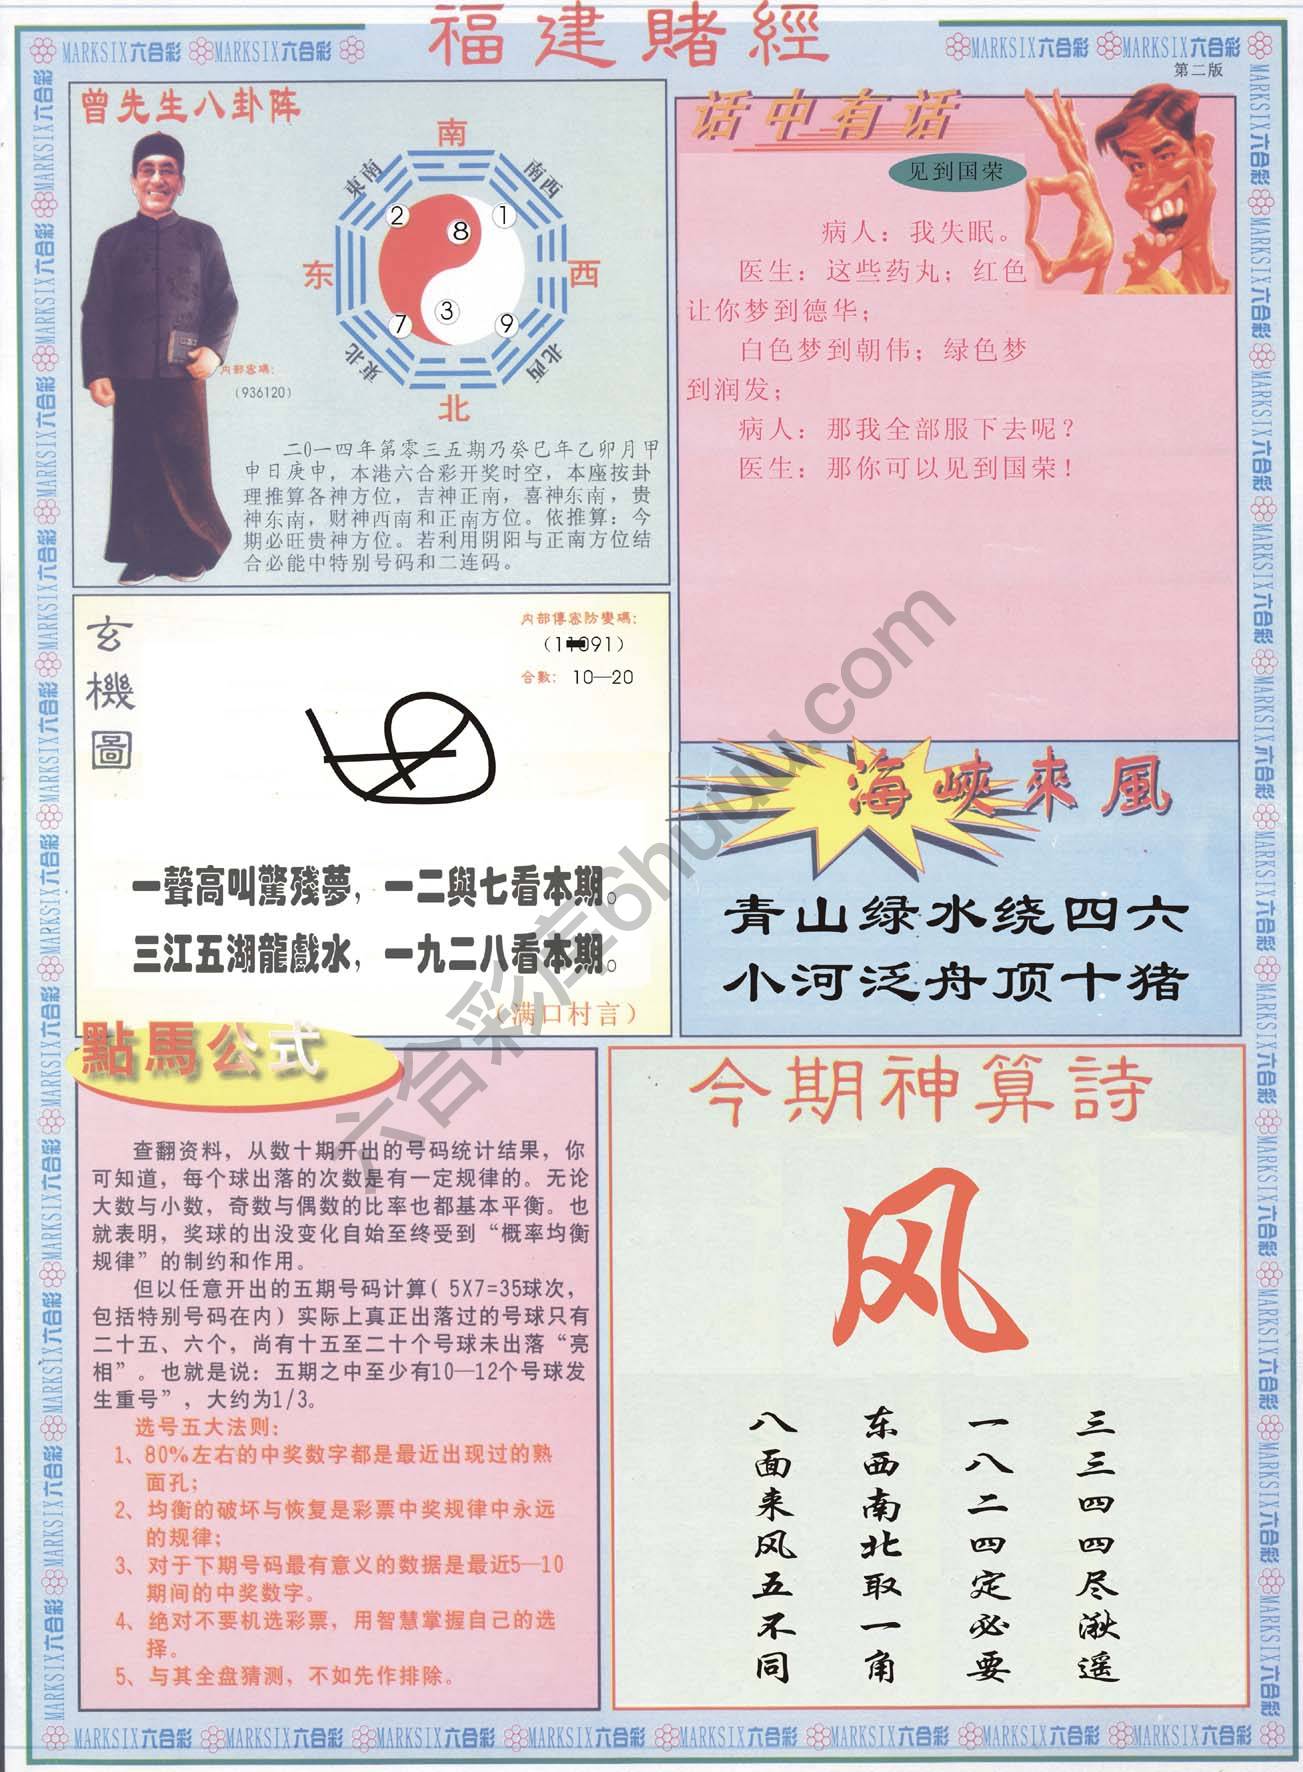 福建賭經
MARKSIX六合彩 MARKSIX六合彩
MARKSIX六合彩 MARKSIX六合彩
第二版
曾先生八卦阵
南
東南
南西
2
1
8
东
西
3
7
9
東北
北西
北
内部密碼:
(936120)
二0一四年第零三五期乃癸巳年乙卯月甲
申日庚申，本港六合彩开奖时空，本座按卦
理推算各神方位，吉神正南，喜神东南，贵
神东南，财神西南和正南方位。依推算：今
期必旺贵神方位。若利用阴阳与正南方位结
合必能中特别号码和二连码。
话中有话
见到国荣
病人：我失眠。
医生：这些药丸；红色
让你梦到德华；
白色梦到朝伟；绿色梦
到润发；
病人：那我全部服下去呢？
医生：那你可以见到国荣！
玄機圖
内部傳密防變碼:
合數: 10—20
一聲高叫驚殘夢，一二與七看本期。
三江五湖龍戲水，一九二八看本期。
（满口村言）
海峽來風
青山绿水绕四六
小河泛舟顶十猪
點馬公式
查翻资料，从数十期开出的号码统计结果，你
可知道，每个球出落的次数是有一定规律的。无论
大数与小数，奇数与偶数的比率也都基本平衡。也
就表明，奖球的出没变化自始至终受到“概率均衡
规律”的制约和作用。
但以任意开出的五期号码计算( 5X7=35球次，
包括特别号码在内) 实际上真正出落过的号球只有
二十五、六个，尚有十五至二十个号球未出落“亮
相”。也就是说：五期之中至少有10—12个号球发
生重号”，大约为1/3。
选号五大法则:
1、80%左右的中奖数字都是最近出现过的熟
面孔;
2、均衡的破坏与恢复是彩票中奖规律中永远
的规律;
3、对于下期号码最有意义的数据是最近5—10
期间的中奖数字。
4、绝对不要机选彩票，用智慧掌握自己的选
择。
5、与其全盘猜测，不如先作排除。
今期神算詩
风
三三四四尽湫遥
一八二四定必要
东西南北取一角
八面来风五不同
MARKSIX六合彩 MARKSIX六合彩 MARKSIX六合彩 MARKSIX六合彩 MARKSIX六合彩 MARKSIX六合彩 MARKSIX六合彩 MARKSIX六合彩
六合彩库6huuu.com